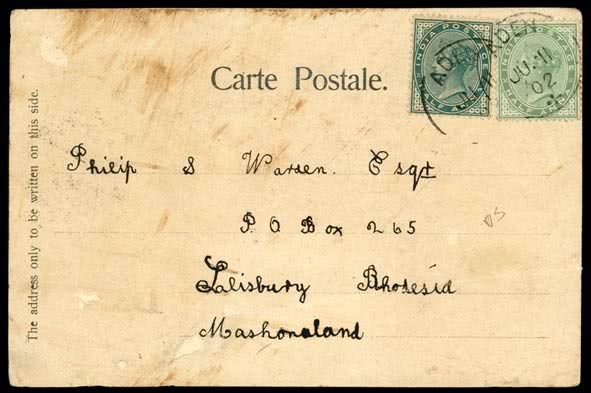 Carte Postale.
INDIA POSTAGE
INDIA POSTAGE
ADEN
ADEN
JU 11
02
The address only to be written on this side.
Philip S Warren. Esqr
P O Box 265
Salisbury Rhodesia
Mashonaland